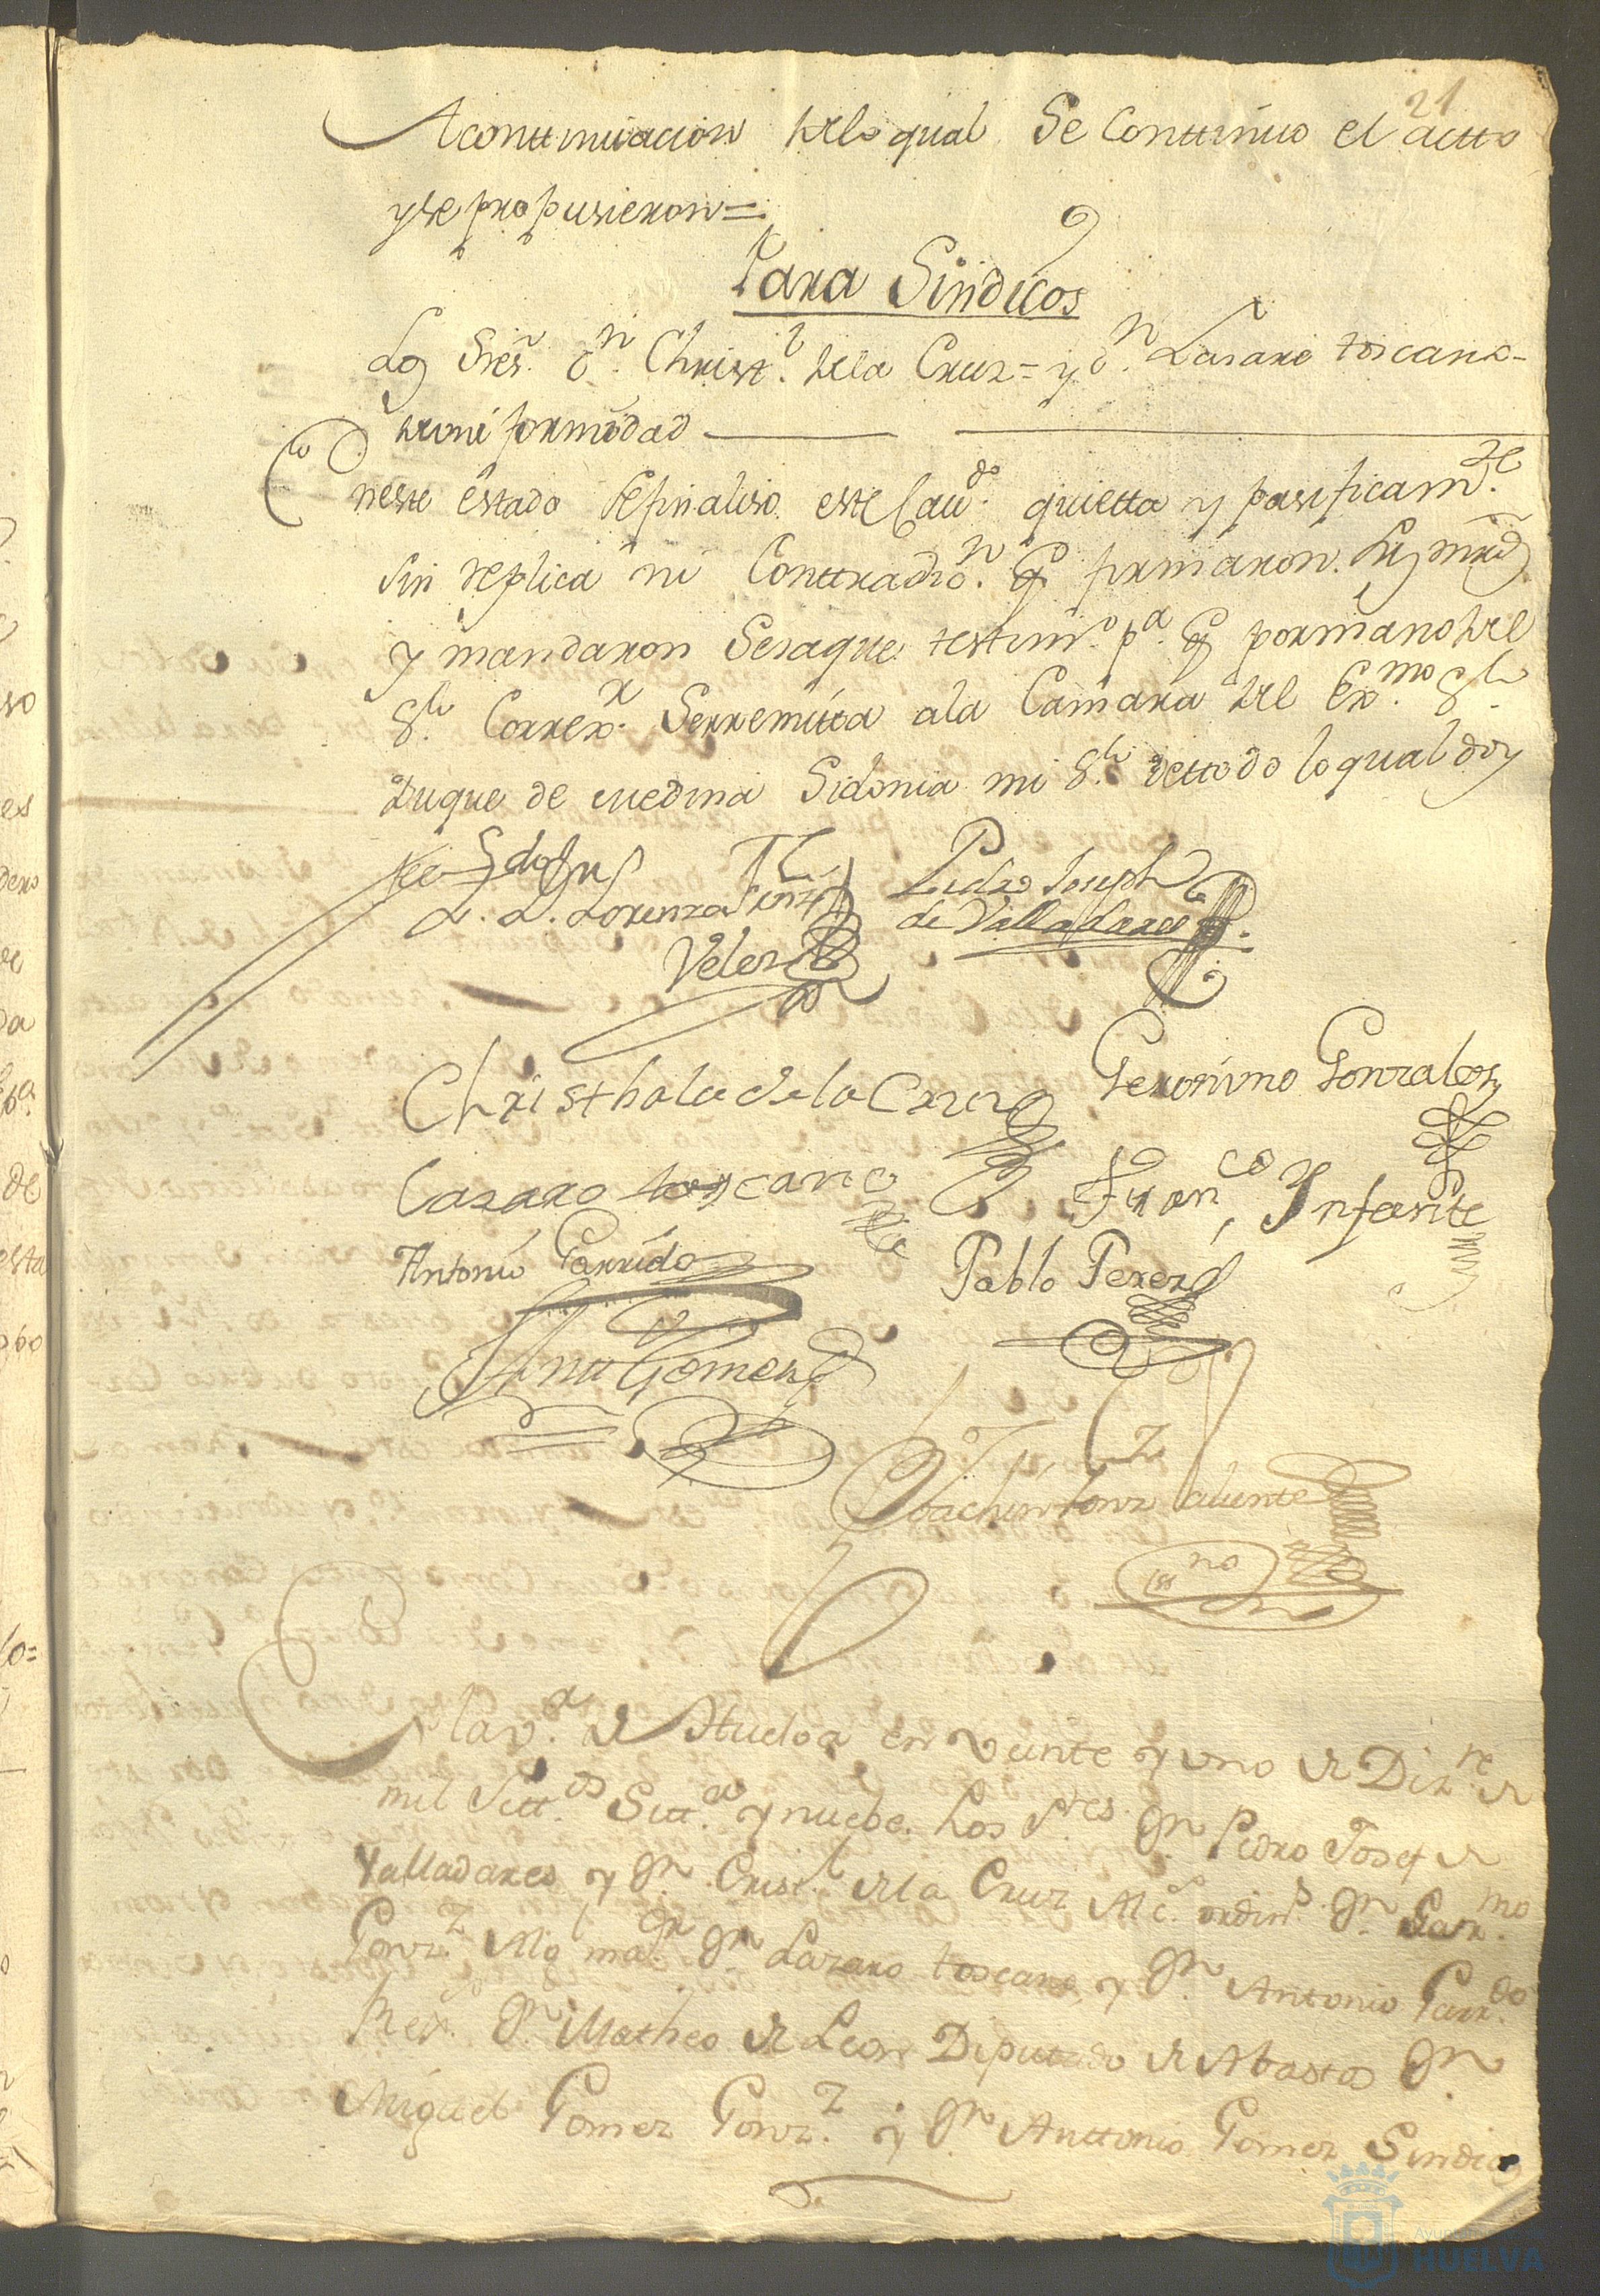 21
A conttinuacion de lo qual Se Conttinuo el actto
y se propusieron =
Para Sindicos
Los Sres. Dn. Christl. de la Cruz = y Dn. Lasaro toscano =
de uniformidad
En este estado se finaliso este Cavdo. quietta y pasificamte.
sin replica ni Conttradizon. q firmaron. los mrds.
y mandaron Sesaque testimo. pa. q por mano del
Sr. Correxr. Serremitta a la Camara del Exmo. Sr.
Duque de Medina Sidonia mi Sr. de ttodo lo qual doy
fee
L. D. Lorenzo
Velez
Pedro Joseph
de Valladares
Christhobal de la Cruz
Geronimo Gonzales
Lazaro toscano
Franco. Infante
Antonio Garrido
Pablo Perez
Antt Gomez
Joachin Gonz Valiente
ssno
En la va. de Huelva en veinte y uno de Dizre. de
mil Settos. Setta. y nuebe. Los Sres. Dn. Pedro Josef de
Valladares y Dn. Cristl. de la Cruz Alcs. ordins. Dn. Germo
Gonzz. Alg. mair. Dn. Lazaro toscano, y Dn. Antonio Garrdo.
Rexs. Dn. Matheo de Leon Diputtado de Abastos Dn.
Miguel Gomez Gonzz. y Dn. Anttonio Gomez Sindicos
HUELVA